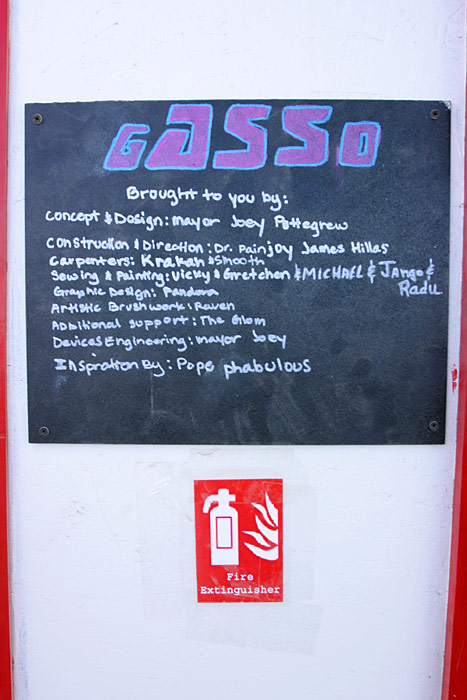 GASSO
Brought to you by:
Concept & Design: mayor Joey Pottegrew
Construction & Direction: Dr. Painjoy James Hillas
Carpenters: Knakan & Smooth
Sewing & Painting: Vicky & Gretchen & MICHAEL & Jango &
Radu
Graphic Design: Pandora
Artistic Brushwork: Raven
Additional support: The Glom
Devices Engineering: mayor Joey
Inspiration By: Pope phabulous
Fire
Extinguisher